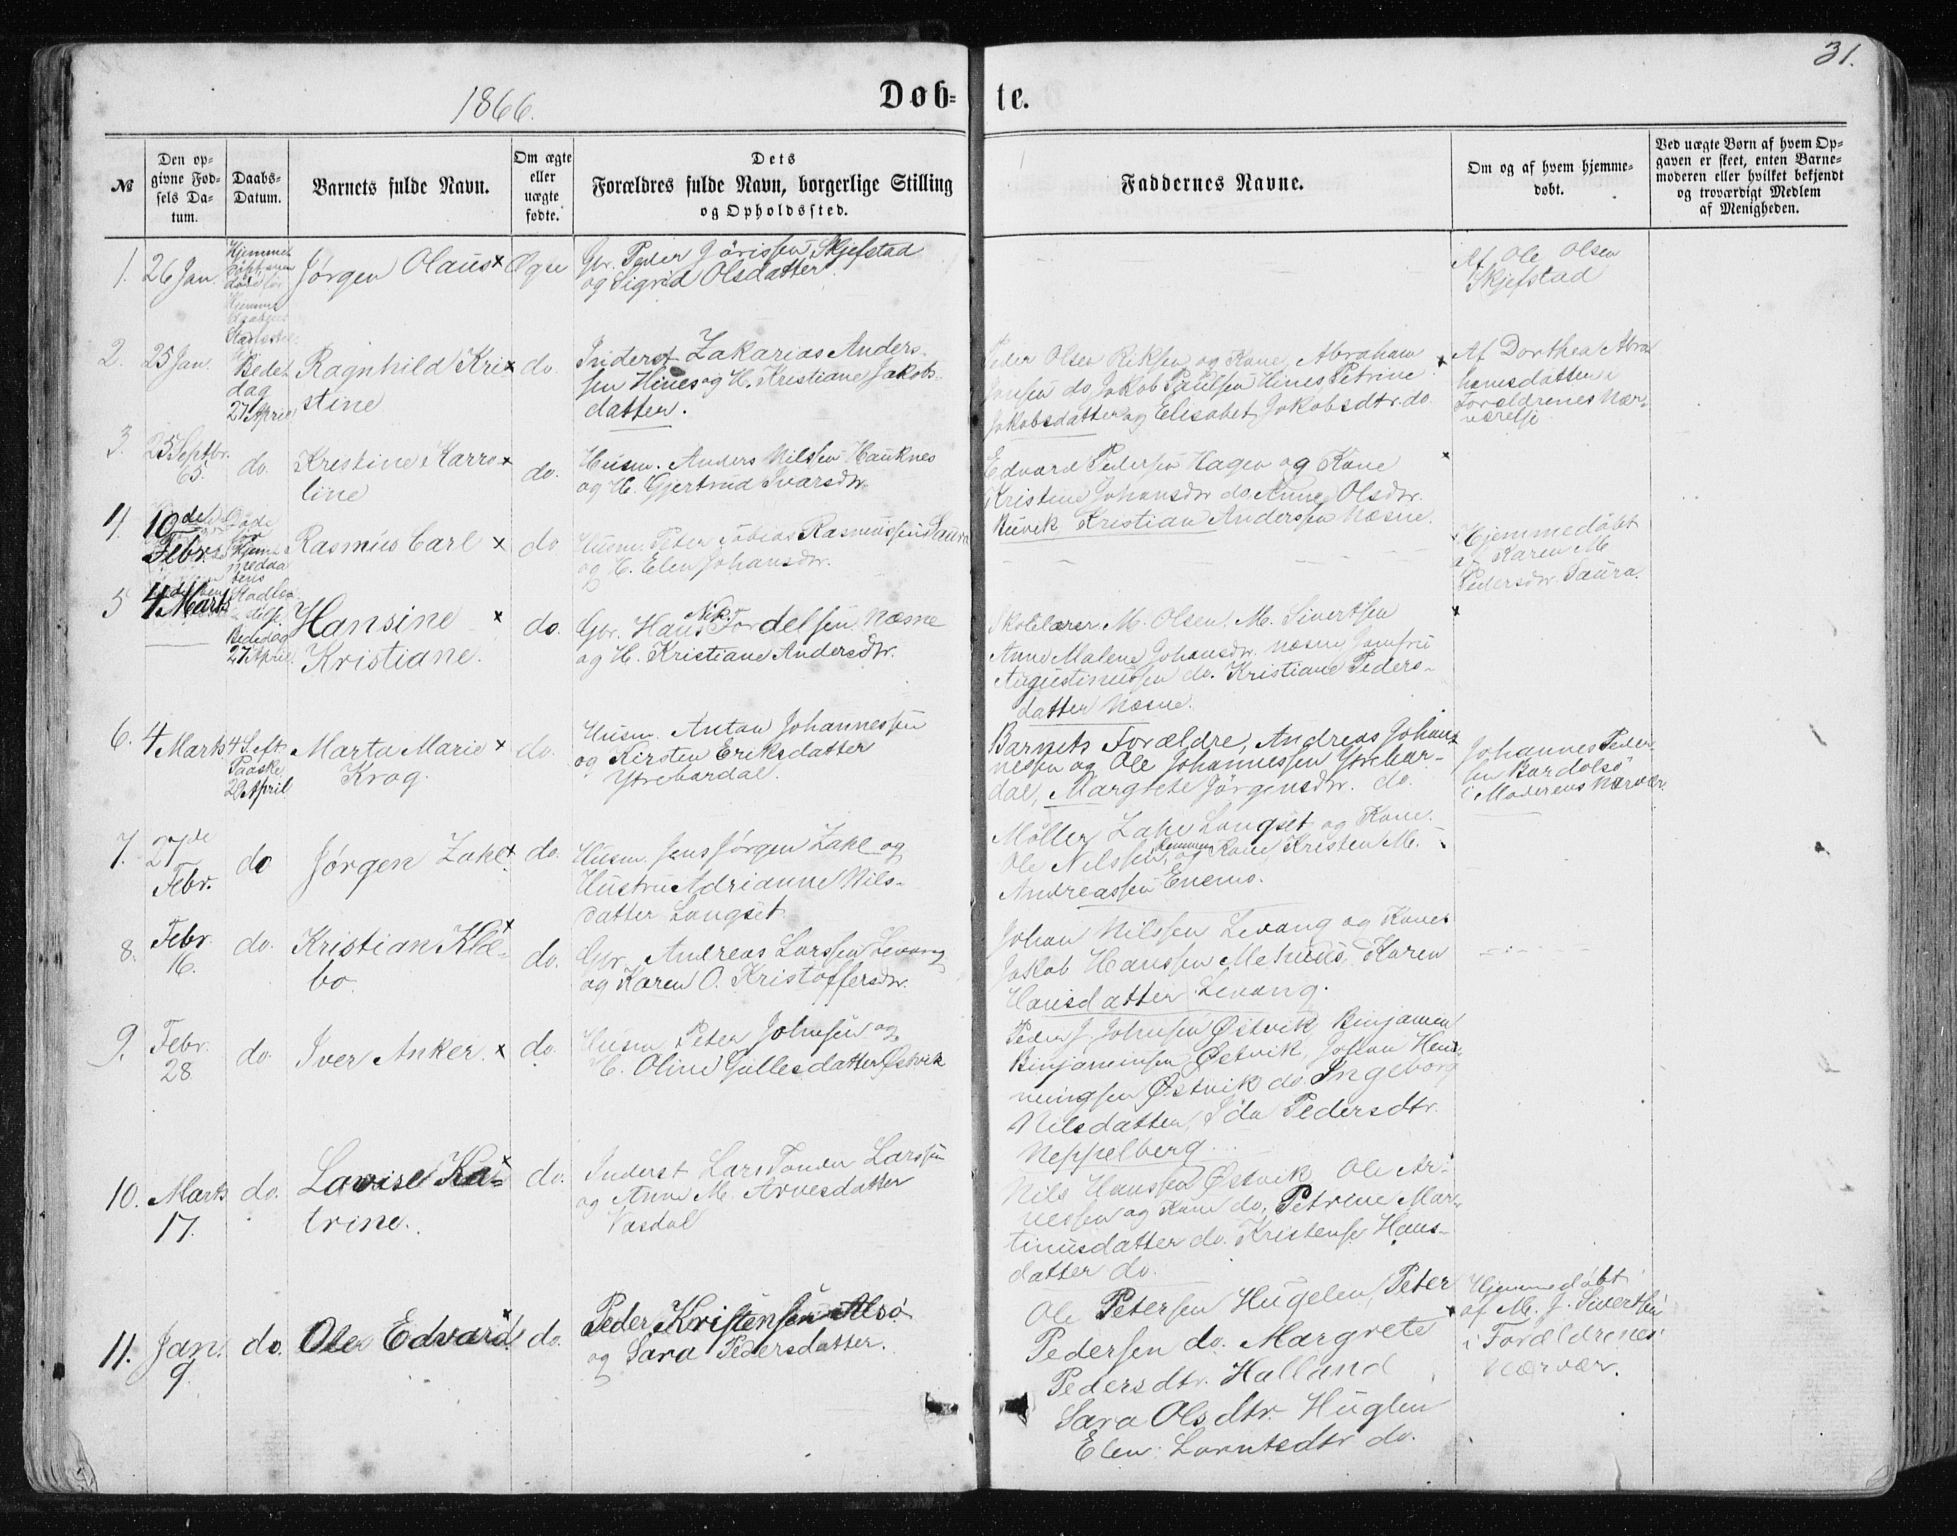 31.
1866.
Døb-te.
№
Den op-
givne Fød-
sels Da-
tum.
Daabs-
Datum.
Barnets fulde Navn.
Om ægte
eller
uægte
fødte.
Dets
Forældres fulde Navn, borgerlige Stilling
og Opholdssted.
Faddernes Navne.
Om og af hvem hjemme-
døbt.
Ved uægte Børn af hvem Op-
gaven er skeet, enten Barne-
moderen eller hvilket bekjendt
og troværdigt Medlem
af Menigheden.
1. 26 Jan.
Jørgen Olaus x
Ægte
Gbr. Peder Jørissen, Skjefstad
og Sigrid Olsdatter
Af Ole Olsen
Skjefstad
2. 25 Jan.
Bede
dag
27 April
Ragnhild Kri x
stine
do.
Inderst Zakarias Anders-
sen Hines og H. Kristiane Jakobs-
datter.
Peder Olsen og Kone, Abraham
do Jakob Paulsen Hines Petrine
Jakobsdatter og Elisabet Jakobsdtr. do.
Af Dorthea Abra
hamsdatter i
Forældrenes Nær-
værelse
3. 25 Septbr.
65.
do.
Kristine Karro x
line
do.
Husm. Anders Nilssen Hauknes
og H. Gjertrud Ivarsdtr.
Edvard Pedersen Hagen og Kone
Kristine Johansdtr do. Anne Olsdtr.
Kristian Anderssen Næsne.
4. 10de
Febr.
Rasmus Carl x
do
Husm. Peter Tobias Rasmussen Saura
og H. Elen Johansdtr.
Hjemmedøbt
af Karen M.
Pedersdtr Saura.
5 4 Marts
Bededag
27 April.
Hansine x
Kristiane.
do.
Gbr. Hans Nik. Fordelsen Næsne
og H. Kristiane Andersdtr.
Skolelærer M. Olsen, M. Sivertsen
Anne Malene Johansdtr. Næsne Jomfru
Augustinussen do. Kristiane Peders-
datter Næsne.
6. 4 Marts
Paaske
April
Marta Marie x
Krog.
do.
Husm. Anton Johannessen
og Kirsten Eriksdatter
Ytrebardal.
Barnets Forældre, Andreas Johan-
nessen og Ole Johannessen Ytrebar-
dal, Margrete Jörgensdtr. do.
Johannes Peder-
sen Bardalsø
i Moderens Nærvær
7. 27de
Febr.
do
Jørgen Zahl x
do.
Husm. Jens Jørgen Zahl og
Hustru Adrianne Nils-
datter Langset.
Møller Zahl Langset og Kone.
Ole Nilssen, og Kone, Kristen M.
Andreassen Enemo.
8. Febr.
16.
do.
Kristian Kle- x
bo.
do.
Gbr. Andreas Larssen Levang
og Karen O. Kristoffersdtr.
Johan Nilssen Levang og Kone
Jakob Hanssen Karen
Hansdatter Levang.
9. Febr.
28
do.
Iver Anker. x
do.
Husm Peter Johnsen og
H. Oline Gullesdatter Østvik
Peder J. Johnsen Østvik, Binjamen
Binjaminsen Østvik, Johan Hen-
ningsen Østvik do. Ingeborg
Nilsdatter, Ida Pedersdtr.
Neppelberg
10. Marts
17.
do.
Lovise Ka- x
trine.
do.
Inderst Lars Tonder Larssen
og Anne M. Arnesdatter
Vasdal
Nils Hanssen Østvik Ole Ar-
nessen og Kone do, Petrine Mar-
tinusdatter do. Kristense Hans-
datter do.
11. Jan.
9.
do.
Ole Edvard x
do.
Peder Kristensen Alsø
og Sara Pedersdatter.
Ole Petersen Hugelen, Peter
Pedersen do. Margrete x
Pedersdtr. Halland
Sara Olsdtr. Huglen
Elen Lorntsdtr do.
Hjemmedøbt
af M. J. Sivertsen
i Forældrenes
Nærvær.